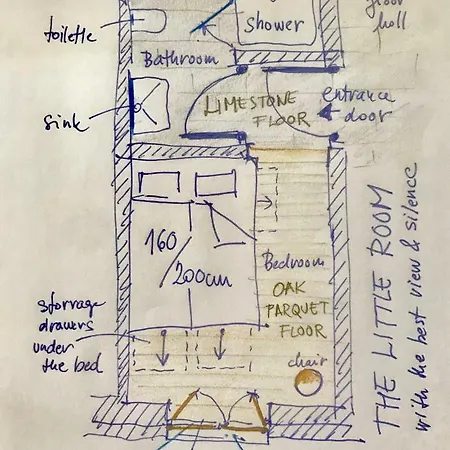 toilette
Shower
floor
hall
Bathroom
sink
LIMESTONE
FLOOR
entrance
door
160
200cm
Bedroom
OAK
PARQUET
FLOOR
storrage
drawers
under
the bed
chair
THE LITTLE ROOM
with the best view & silence